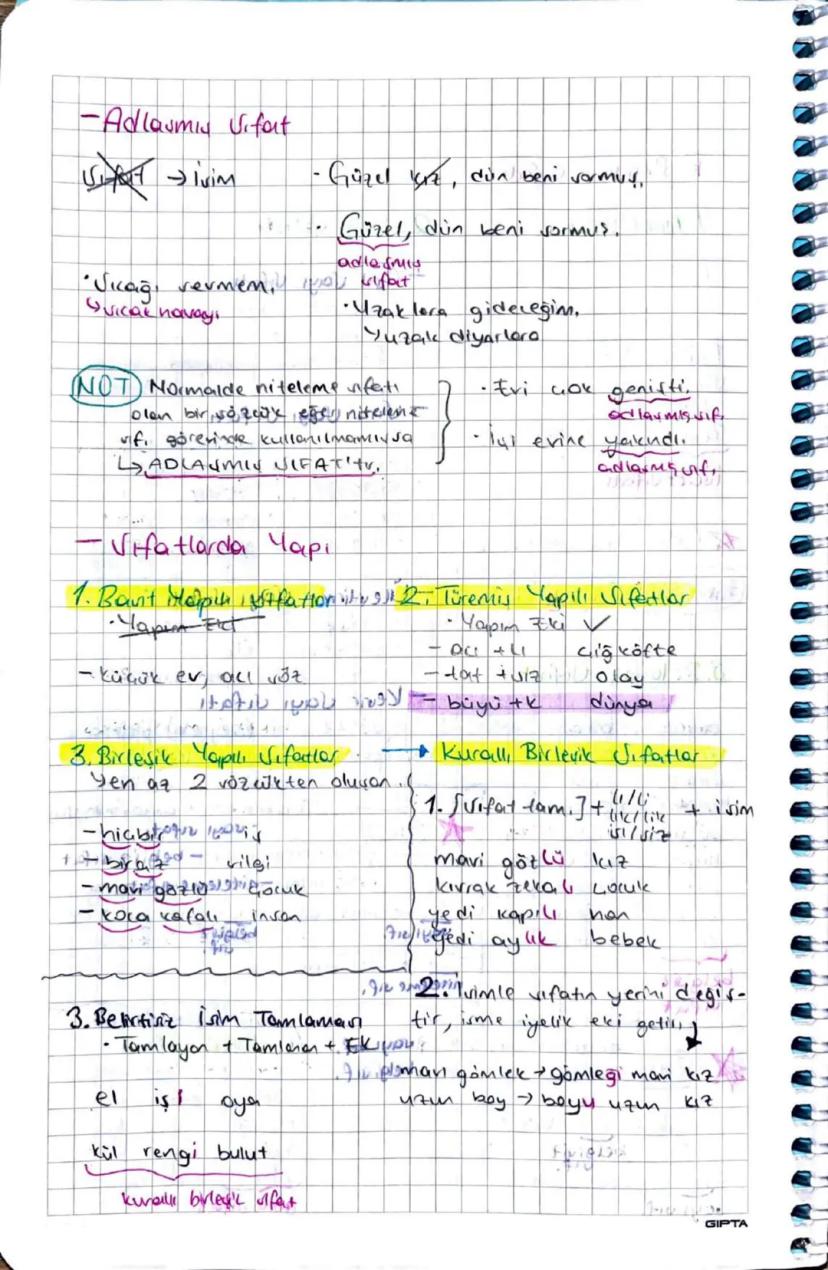 - Adlaşmış Sıfat
Sıfat → İsim
· Güzel kız, dün beni sormuş.
· Güzel, dün beni sormuş.
adlaşmış
sıfat
· Sıcağı sevmem.
↳ sıcak havayı
· Uzaklara gideceğim.
↳ uzak diyarlara
NOT Normalde niteleme sıfatı
olan bir sözcük eğer niteleme
sıf. görevinde kullanılmamışsa
↳ ADLAŞMIŞ SIFAT'tır.
· Evi çok genişti.
adlaşmış sıf.
· İşi evine yakındı.
adlaşmış sıf.
- Sıfatlarda Yapı
1. Basit Yapılı Sıfatlar
· Yapım Eki
- küçük ev, acı söz
2. Türemiş Yapılı Sıfatlar
· Yapım Eki ✓
- acı + lı çiğ köfte
- tat + sız olay
- büyü + k dünya
3. Birleşik Yapılı Sıfatlar
↳ en az 2 sözcükten oluşan.
- hiçbir iş
- biraz silgi
- mavi gözlü çocuk
- koca kafalı insan
→ Kurallı Birleşik Sıfatlar
1. [sıfat tam.] + lı/li lık/lik ısı/siz + isim
mavi gözlü kız
kıvrak zekalı çocuk
yedi kapılı han
yedi aylık bebek
2. İsimle sıfatın yerini değiş-
tir, isme iyelik eki getir.
mavi gömlek → gömleği mavi kız
uzun boy → boyu uzun kız
3. Belirtisiz İsim Tamlaması
· Tamlayan + Tamlanan + Ek
el işi oya
kül rengi bulut
kurallı birleşik sıfat
GIPTA